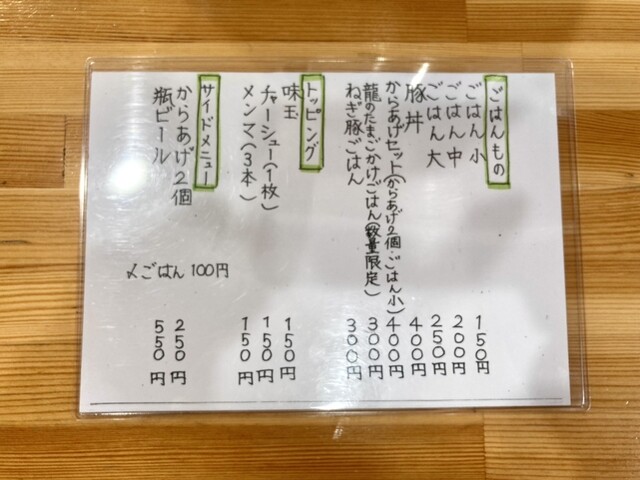 ごはんもの
ごはん 小 150円
ごはん 中 200円
ごはん 大 250円
豚丼 400円
からあげセット(からあげ2個・ごはん小) 400円
龍のたまごかけごはん(数量限定) 300円
ねぎ豚ごはん 300円
トッピング
味玉 150円
チャーシュー(1枚) 150円
メンマ(3本) 150円
サイドメニュー
からあげ2個 250円
瓶ビール 550円
〆ごはん 100円